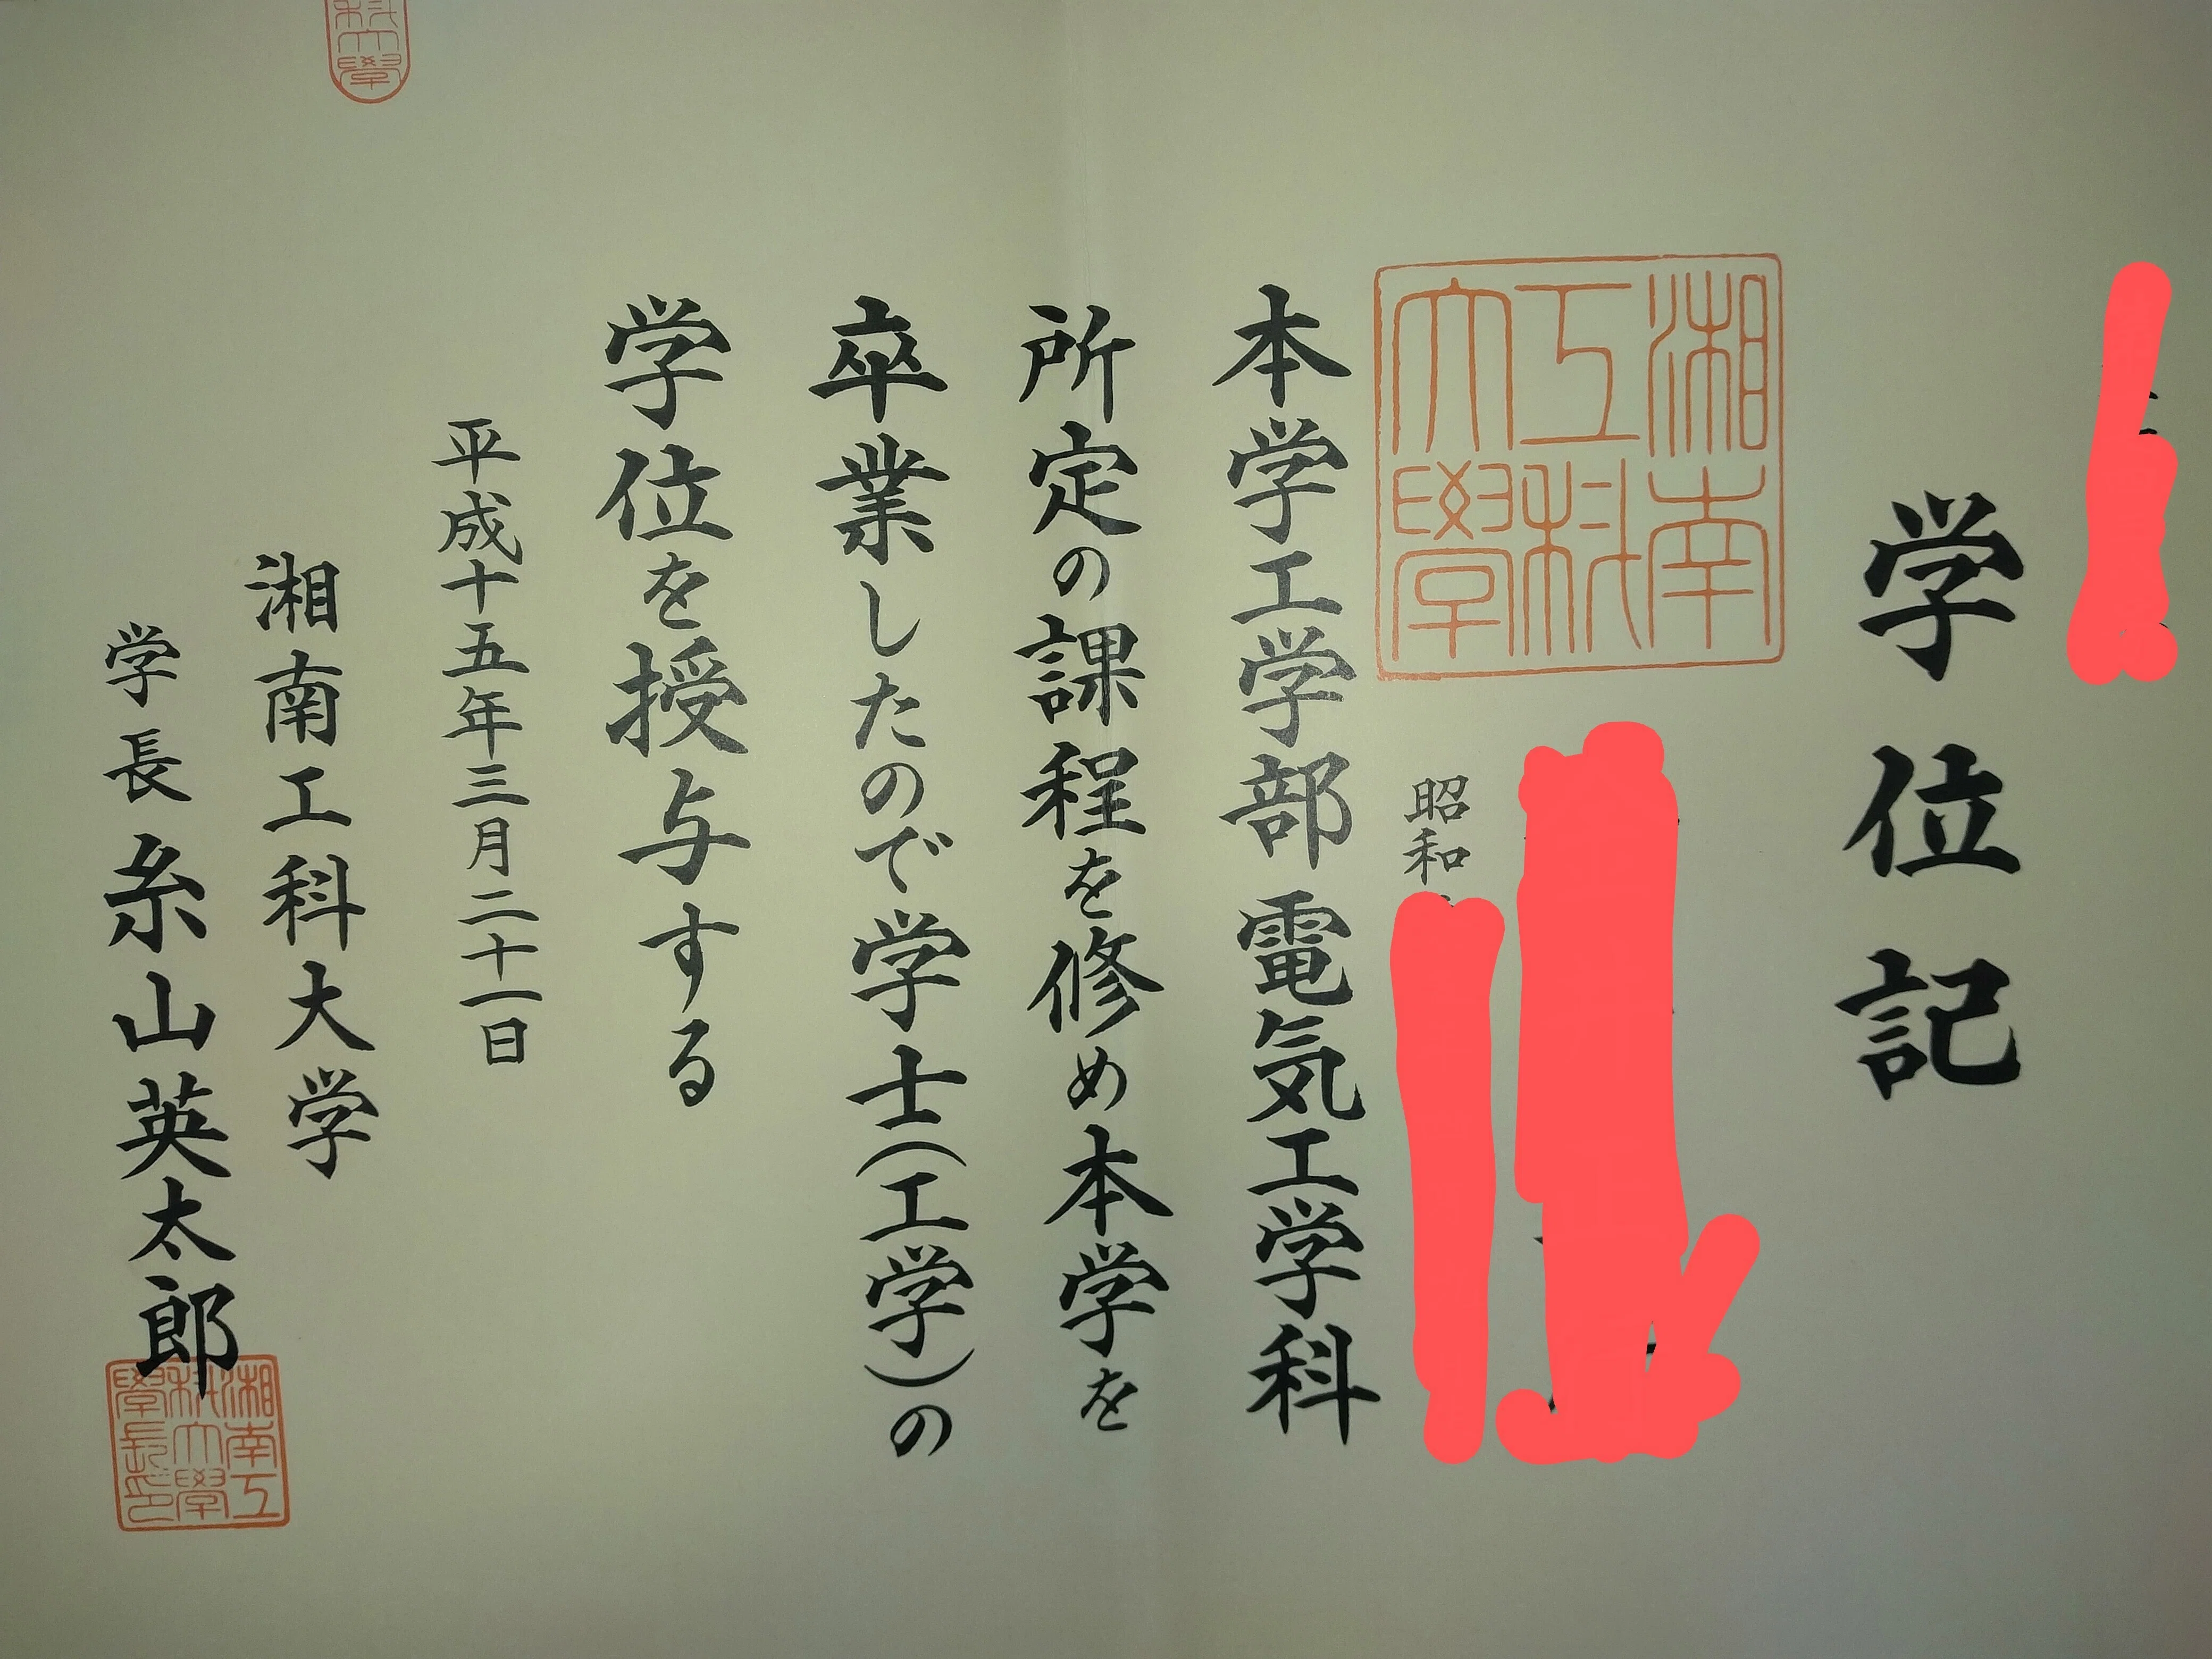 学位記
湘南
工科
大學
昭和
本学工学部電気工学科
所定の課程を修め本学を
卒業したので学士(工学)の
学位を授与する
平成十五年三月二十一日
湘南工科大学
学長糸山英太郎
湘南工
科大學
學長印
科大學